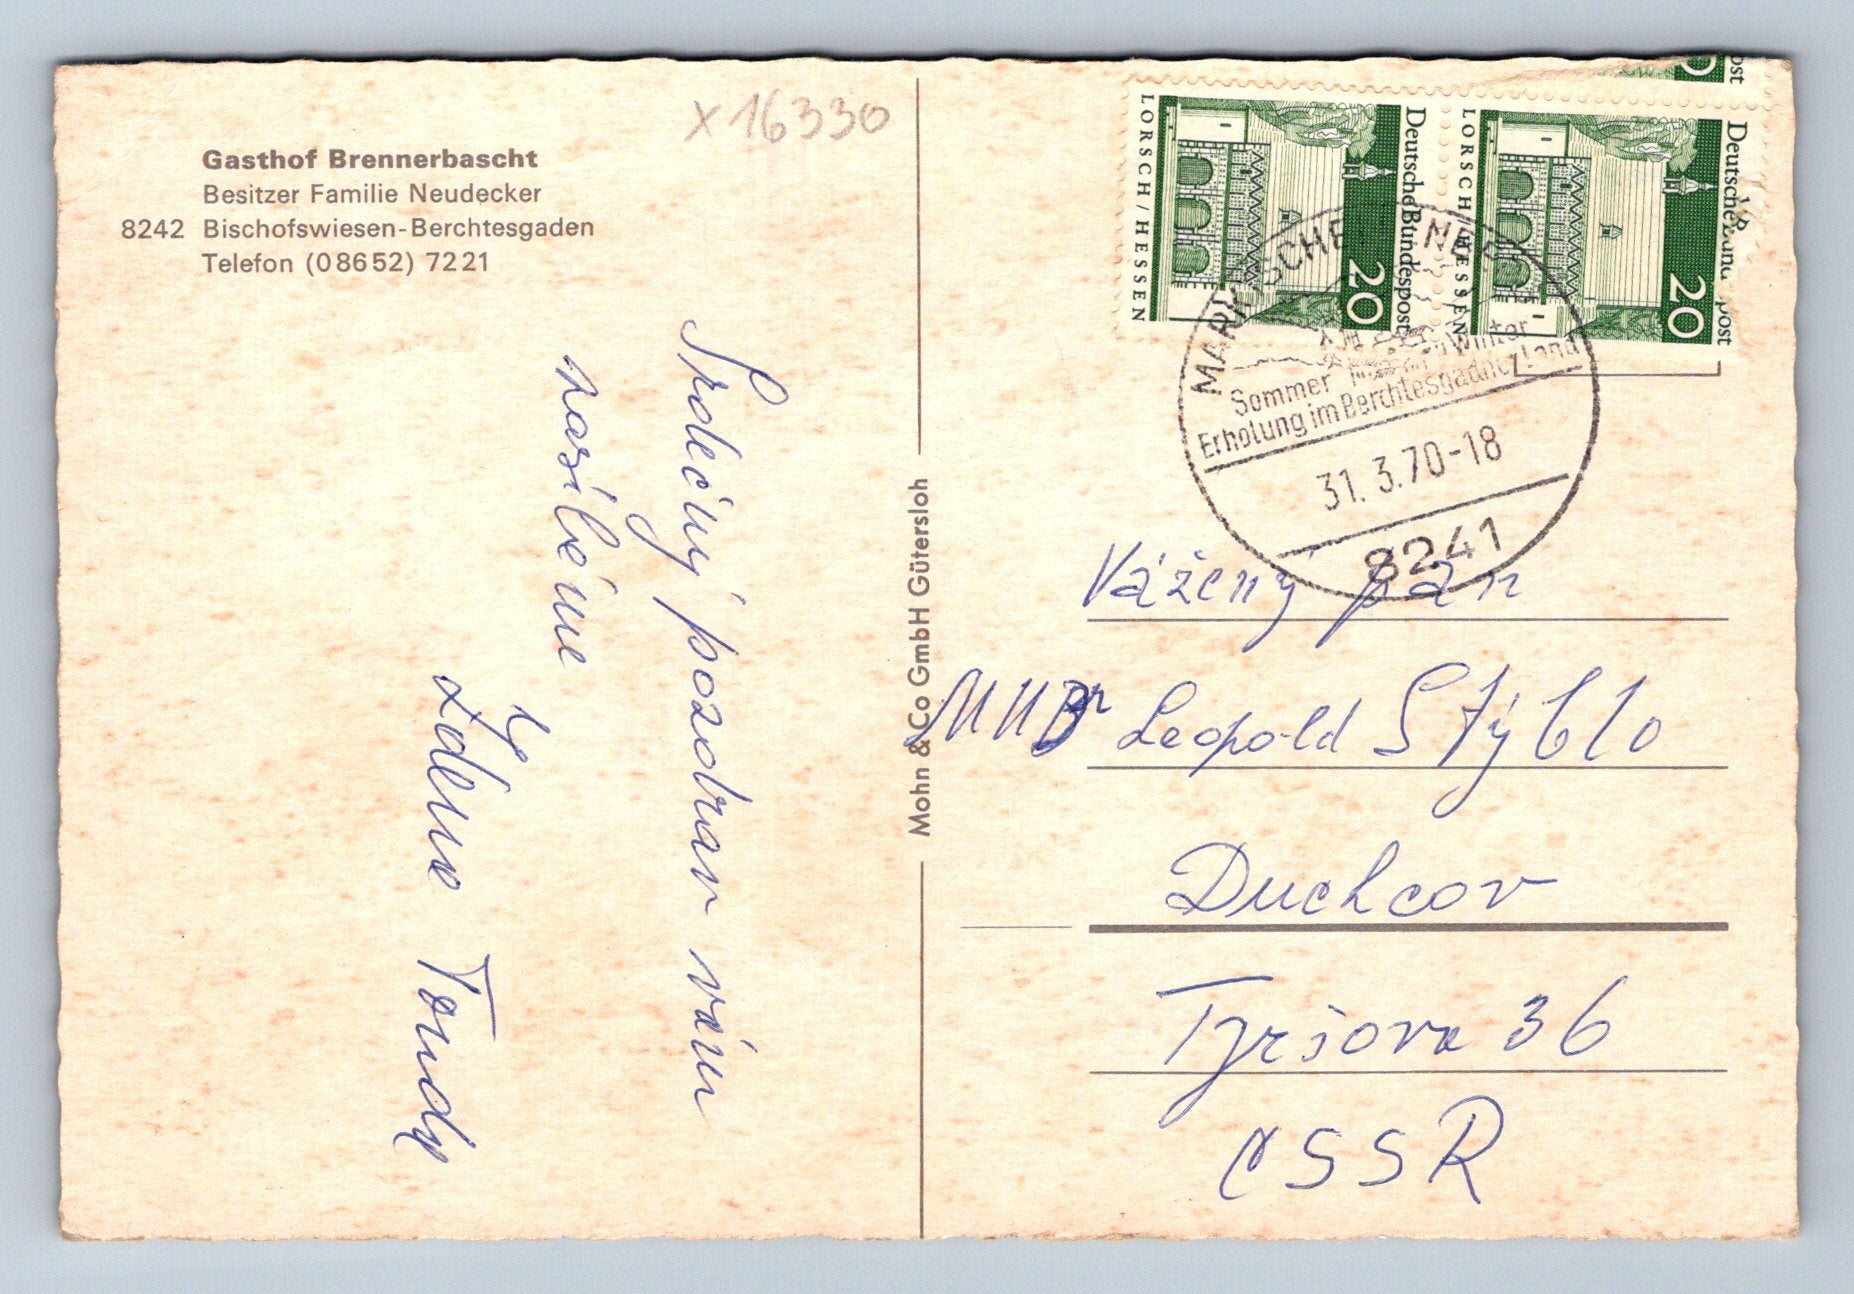 x 16330
Gasthof Brennerbascht
Besitzer Familie Neudecker
8242 Bischofswiesen-Berchtesgaden
Telefon (08652) 7221
Srdečný pozdrav vám
posíláme
Mohn & Co GmbH Gütersloh
Deutsche Bundespost
20
LORSCH/HESSEN
Deutsche Bundespost
20
LORSCH/HESSEN
ost
Sommer Winter
Erholung im Berchtesgadner Land
31.3.70-18
8241
Vážený pán
MUDr Leopold Stýblo
Duchcov
Tyršova 36
ČSSR